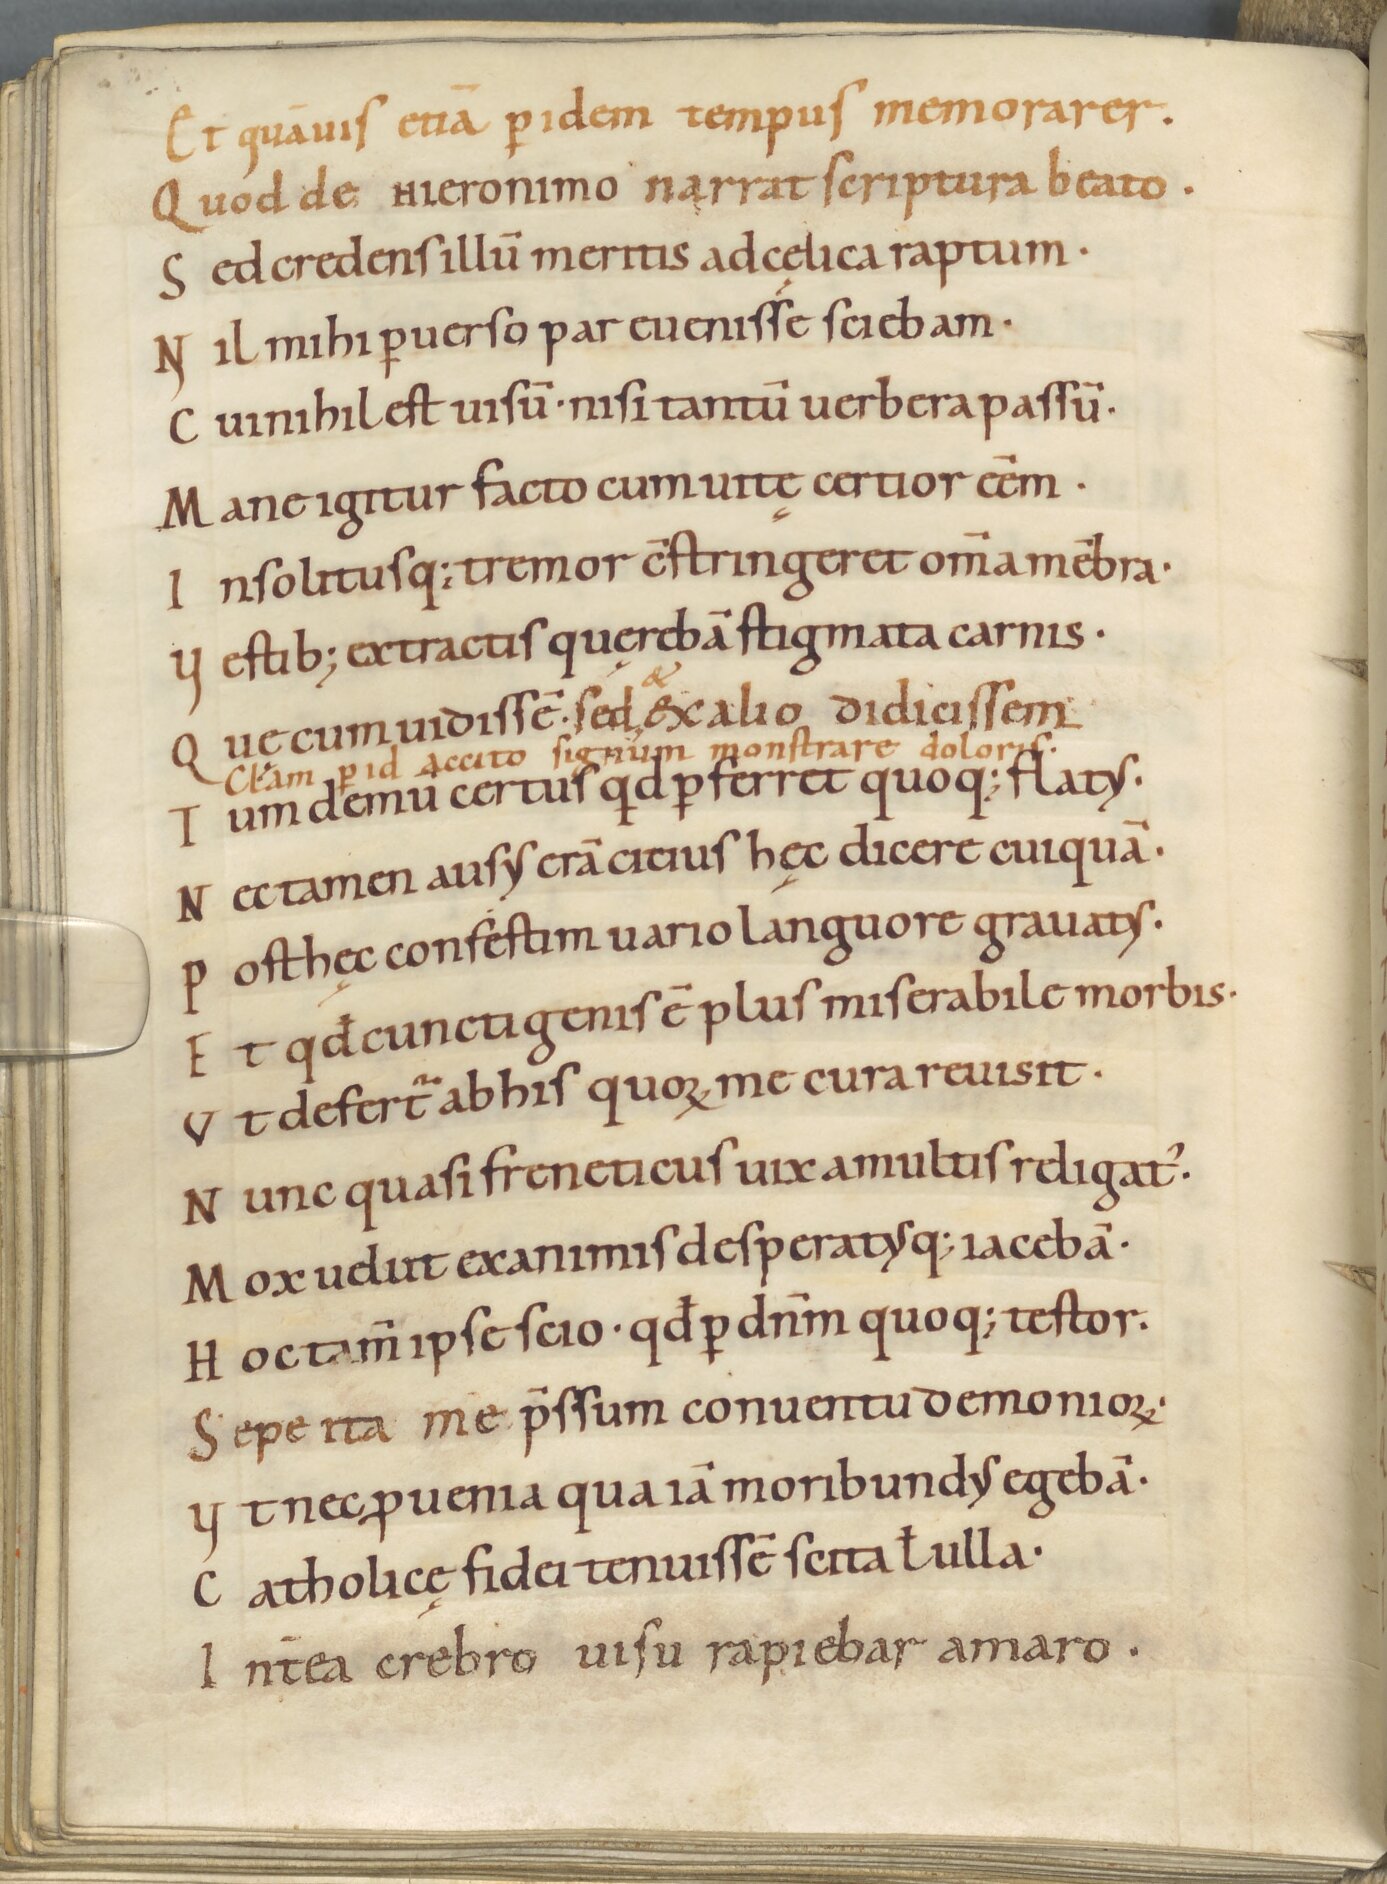 Et quāuis etiā ꝑ idem tempus memorarer.
Quod de hieronimo narrat scriptura beato.
Sed credens illū meritis ad cęlica raptum.
Nil mihi ꝑuerso par euenisse sciebam.
Cui nihil est uisū. nisi tantū uerbera passū.
Mane igitur facto cum uitę certior eēm.
Insolitusq; tremor c̄stringeret om̄a mēbra.
Vestib; extractis quęrebā stigmata carnis.
Quę cum uidissē. sed & ex alio didicissem
Clam ꝑ id accito signum monstrare doloris.
Tum demū certus qđ ꝑferret quoq; flatus.
Nec tamen ausus erā citius hęc dicere cuiquā.
Post hęc confestim uario languore grauatus.
Et qđ cuncti genis ē plus miserabile morbis.
Vt defert᷑ ab his quoꝝ me cura reuisit.
Nunc quasi freneticus uix a multis religat᷑.
Mox uelut exanimis desperatusq; iacebā.
Hoc tam̄ ipse scio. qđ ꝑ dn̄m quoq; testor.
Sepe ita me p̄ssum conuentu demonioꝝ.
Vt nec ꝓ uenia qua iā moribundus egebā.
Catholicę fidei tenuissē scita ł ulla.
Int̄ea crebro uisu rapiebar amaro.